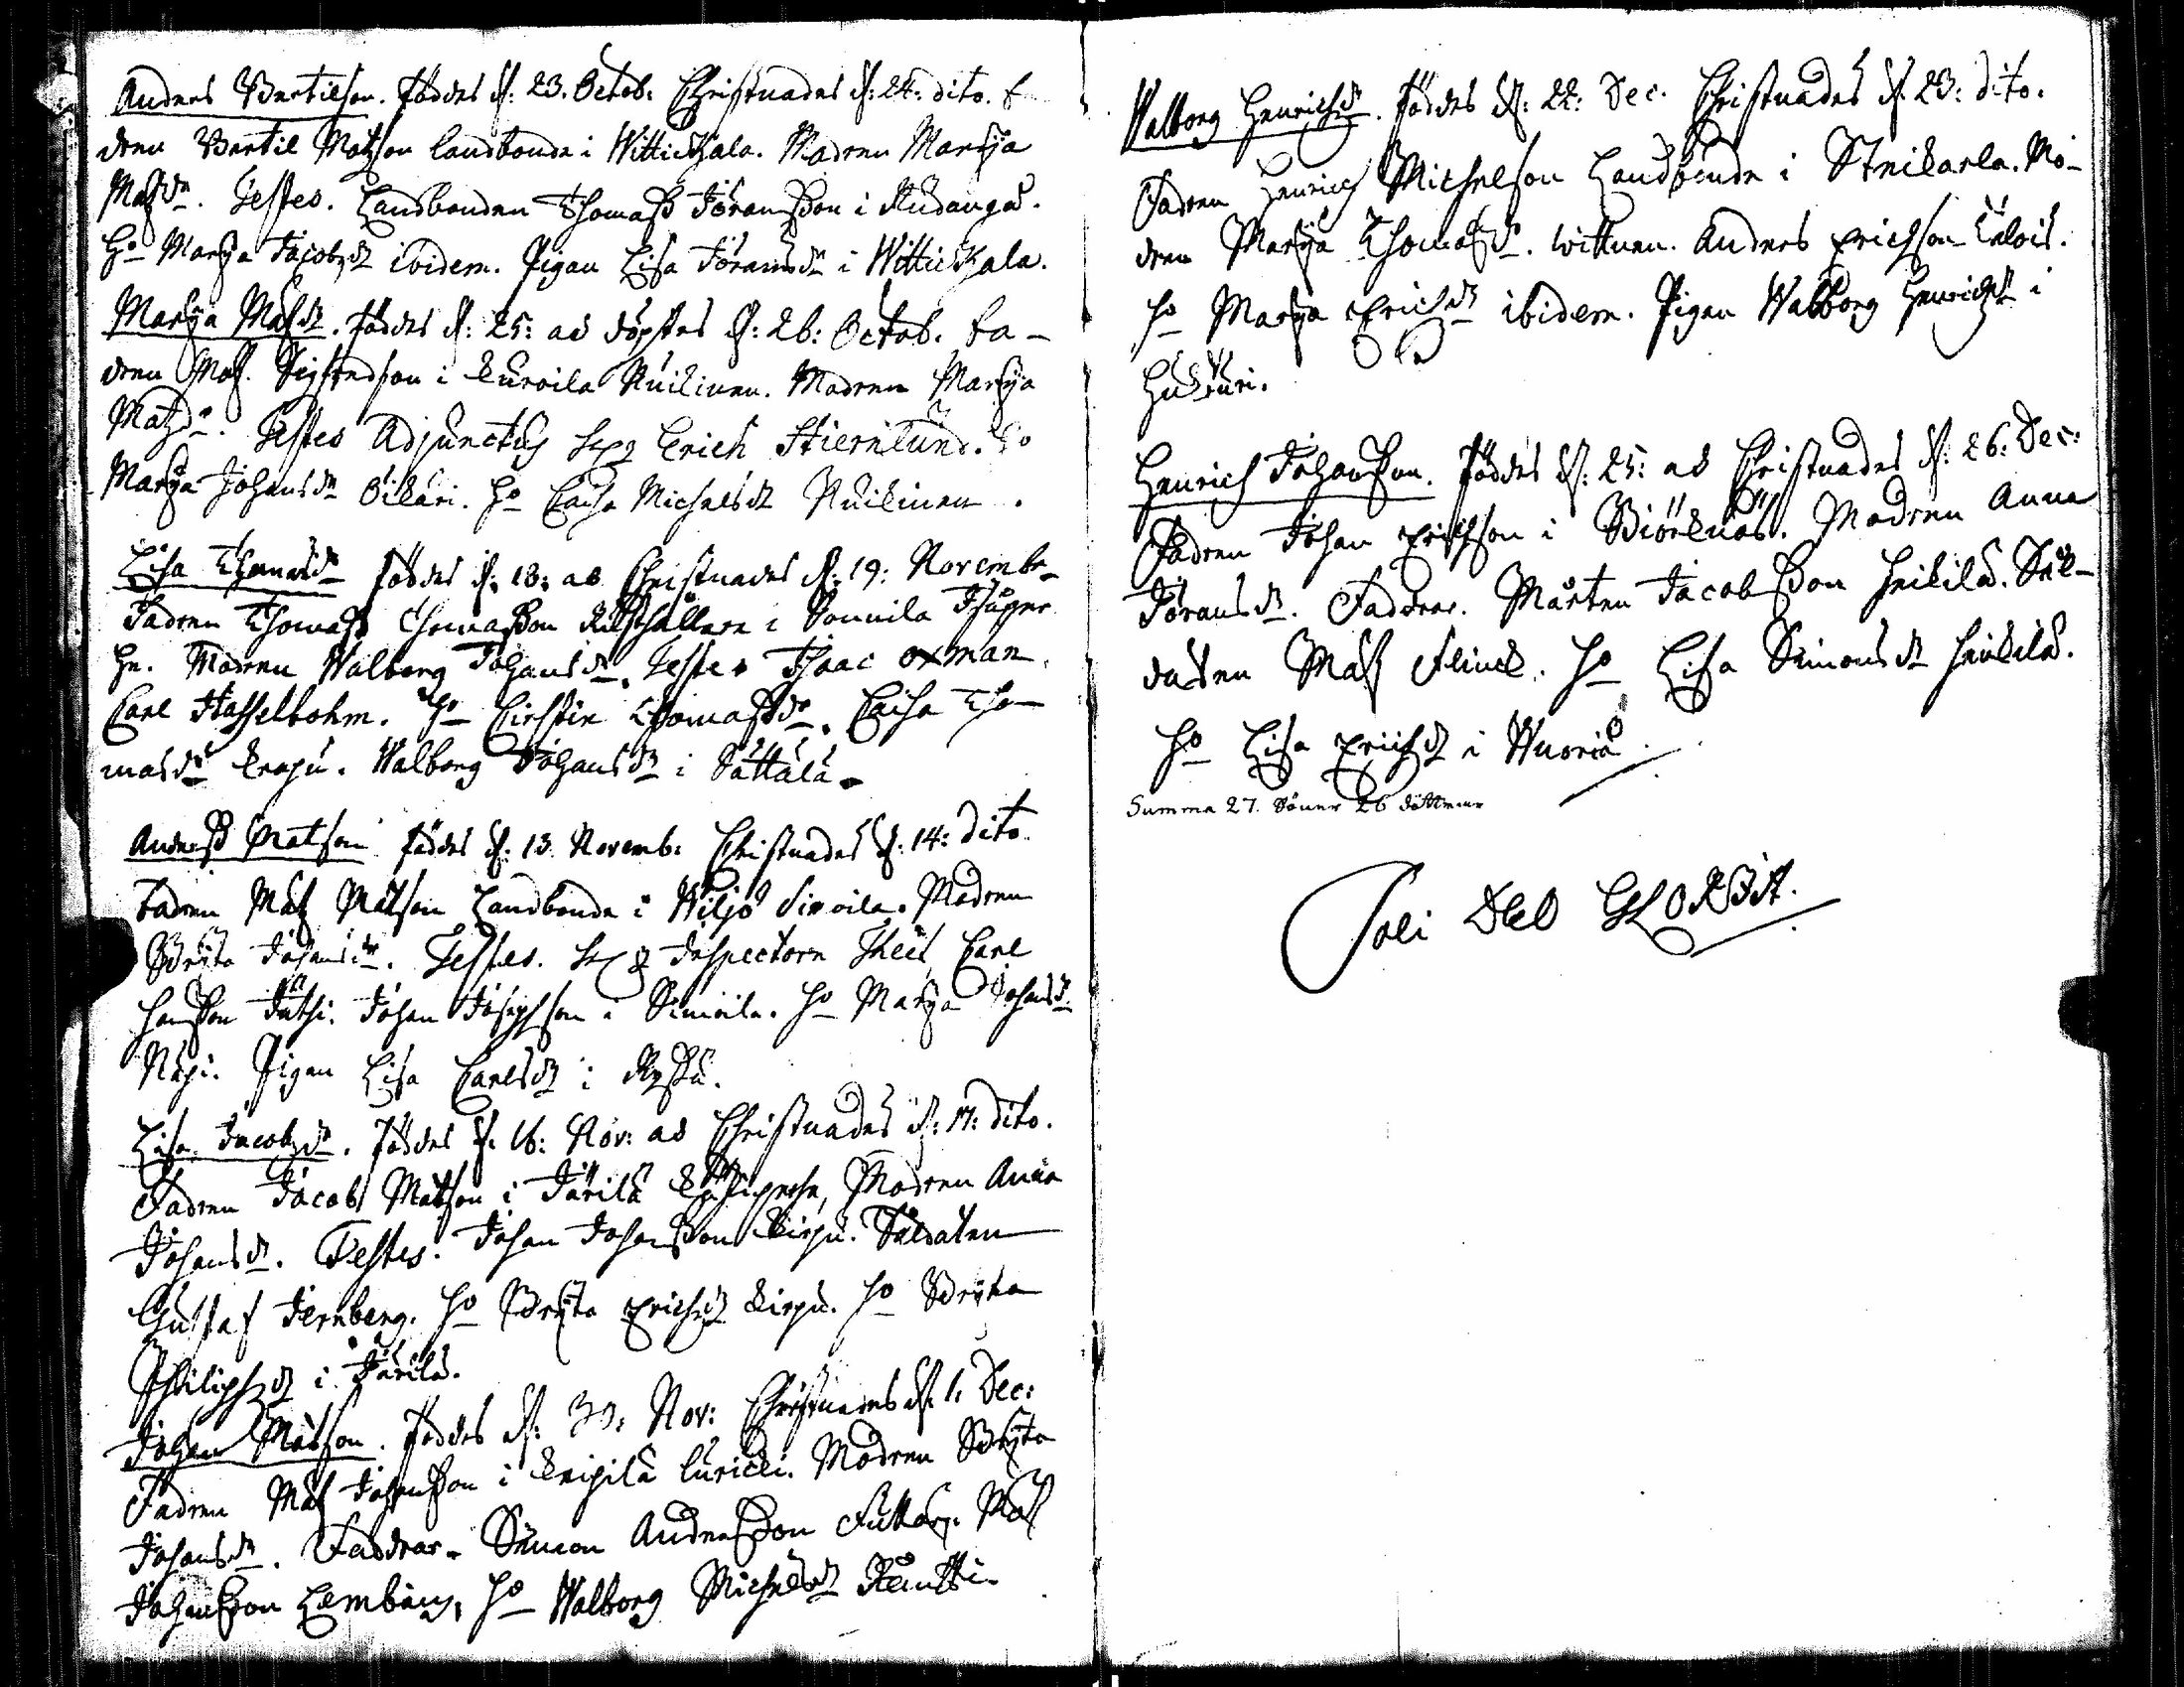 Anders Bertilson. föddes d: 23. Octob: Christnades d: 24: dito. f
dren Bertil Matzson landbonde i Wittickala. Madren Marija
Matzdr. Testes. Landbonden Thomass Göransson i
Ho Marija Jacobsdr ibidem. Pigan Lisa Göransdr i Wittickala.
Marija Matzdr. föddes d: 25: ac döptes d: 26: Octob. fa-
dren Matz Sigfredson i Kuroila Nuikinen. Madren Marija
Matzdr. Testes Adjunctus Erich Stiernlund. Ho
Marija Johansdr Oikari. Ho Caisa Michelsdr Nuikinen.
Lisa Thomasdr föddes d: 18: ac Christnades d: 19: Novembr
Fadren Thomass Thomasson Rusthållare i Sonnila
Madren Walborg Johansdr. Testes Isaac Oxman.
Carl Hasselbohm. Ho Cirstin Thomasdr. Caisa Tho-
masdr Krapu. Walborg Johansdr i Sattala.
Anderss Matson föddes d: 13 Novemb: Christnades d: 14: dito.
Fadren Matz Matson Landbonde i Wiljo Simoila. Madren
Brita Johansdr. Testes. Inspectoren Carl
Hansson Johan Josephson i Simoila. Ho Marija Johansdr
Näpi. Pigan Lisa Carlsdr i
Lisa Jacobsdr. föddes d. 16: Nov: ac Christnades d: 17: dito.
Fadren Jacob Matson i Järilä Madren Anna
Johansdr. Testes. Johan Johansson Kirpu. Soldaten
Gustaf Jernberg. Ho Brijta Erichsdr Kirpu. Ho Brijta
Philipsdr i Järilä.
Johan Matson. föddes d: 30: Nov: Christnades d. 1: Dec:
Fadren Matz Johansson i Knipilä Luricki. Madren Brijta
Johansdr. Faddrar. Simon Andersson Matz
Johansson Ho Walborg Michelsdr
Walborg Henrichsdr. föddes d: 22: Dec. Christnades d: 23: dito.
Fadren Henrich Michelson Landbonde i Strikarla. Mo-
dren Marija Thomasdr. Wittnen. Anders Erichson
Ho Marija Erichsdr ibidem. Pigan Walborg Henrichsdr i
Hukuri.
Henrich Johansson. föddes d: 25: ac Christnades d: 26: Dec:
Fadren Johan Erichson i Biörknäs. Madren Anna
Göransdr. Faddrar. Mårten Jacobsson Heikilä. Sol-
daten Matz Flinck. Ho Lisa Simonsdr Heikilä.
Ho Lisa Erichsdr i Wuoria.
Summa 27. Söner 26 döttrar
Soli DEO GLORIA.